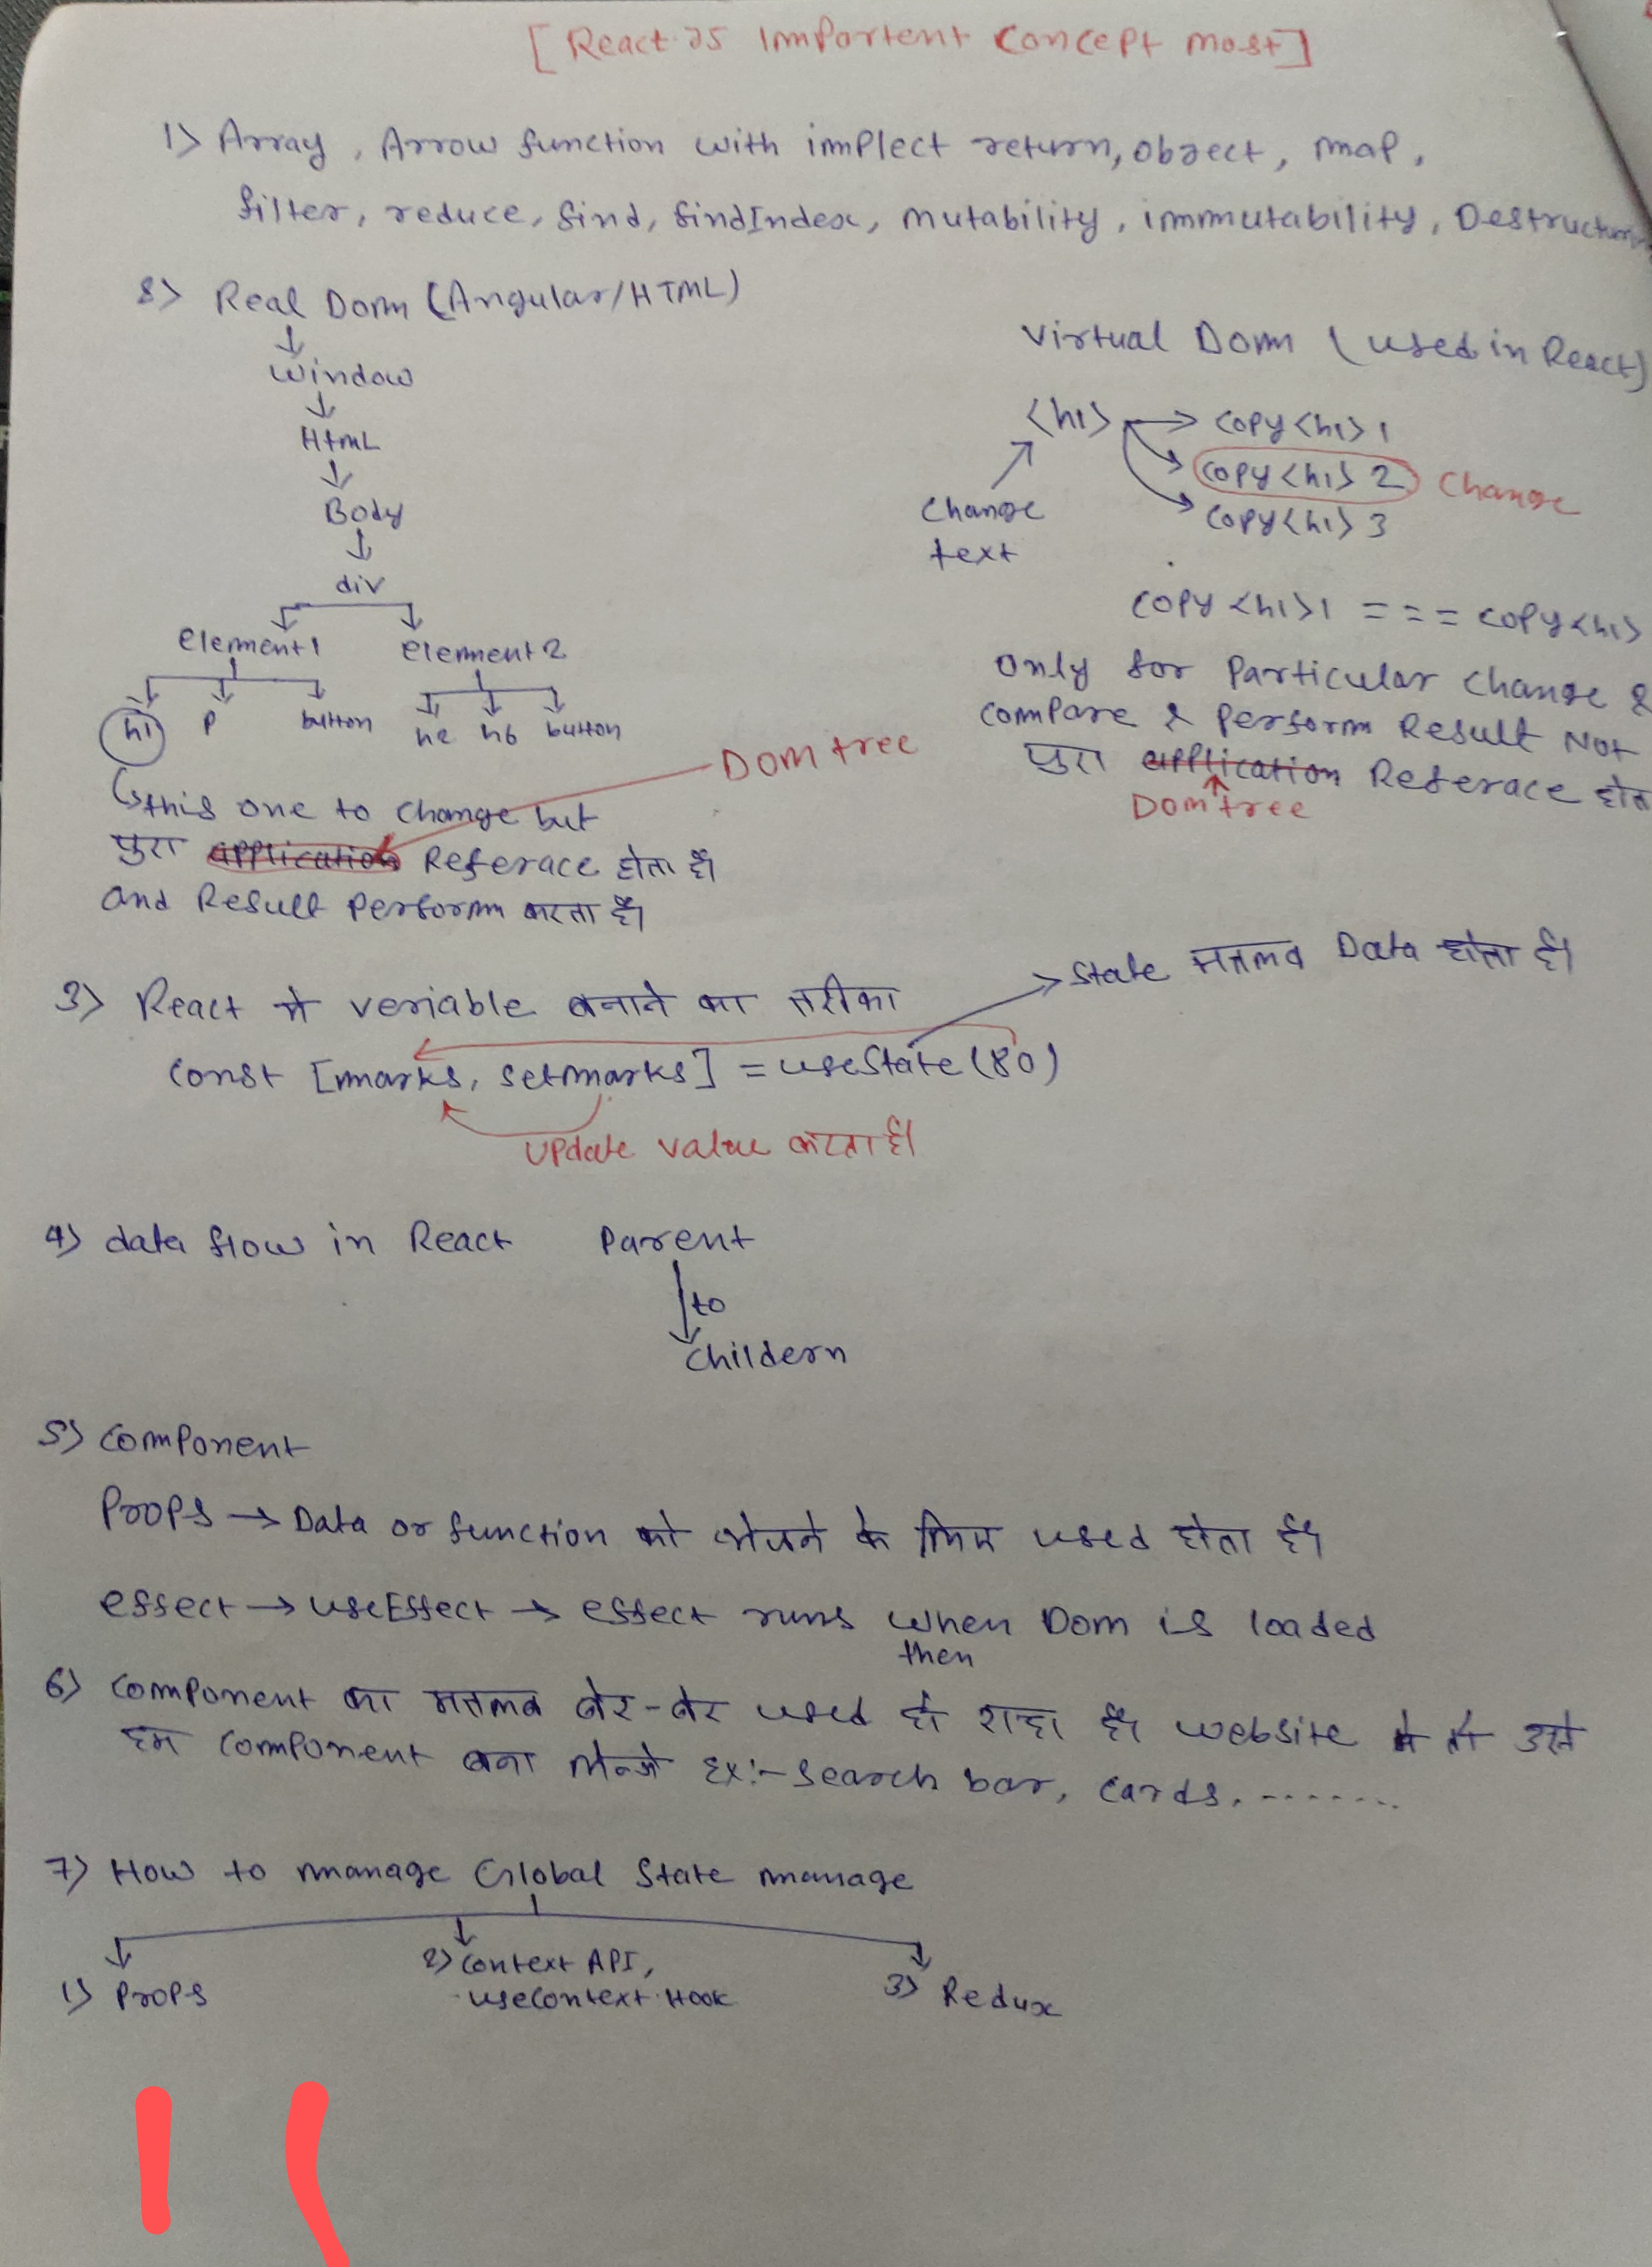 [React JS Importent Concept most]
1> Array, Arrow function with implect return, object, map,
filter, reduce, find, findIndex, mutability, immutability, Destructuring
8> Real Dom (Angular/HTML)
Window
HtmL
Body
div
Element1 Element2
h1 P button h2 h6 button
Dom tree
this one to change but
पुरा application Referace होता है।
and Result Perform करता है।
Virtual Dom (used in React)
<h1> copy<h1>1
copy<h1>2 Change
copy<h1>3
Change
text
copy<h1>1 === copy<h1>
only for Particular change &
compare & perform Result Not
पुरा application Referace होता
Dom tree
3> React मे veriable बनाने का तरीका
State मतलब Data होता है।
const [marks, setmarks] = useState(80)
update value करता है।
4> data flow in React Parent
to
Childern
5> Component
Props → Data or function को भेजने के लिए used होता है।
effect → useEffect → effect runs when Dom is loaded
then
6> Component का मतलब बेर-बेर used हो राहा है। website मे तो उसे
हम component बना लेन्गे Ex:- Search bar, cards, .......
7> How to manage Global State manage
1) Props
2) Context API,
useContext Hook
3> Redux